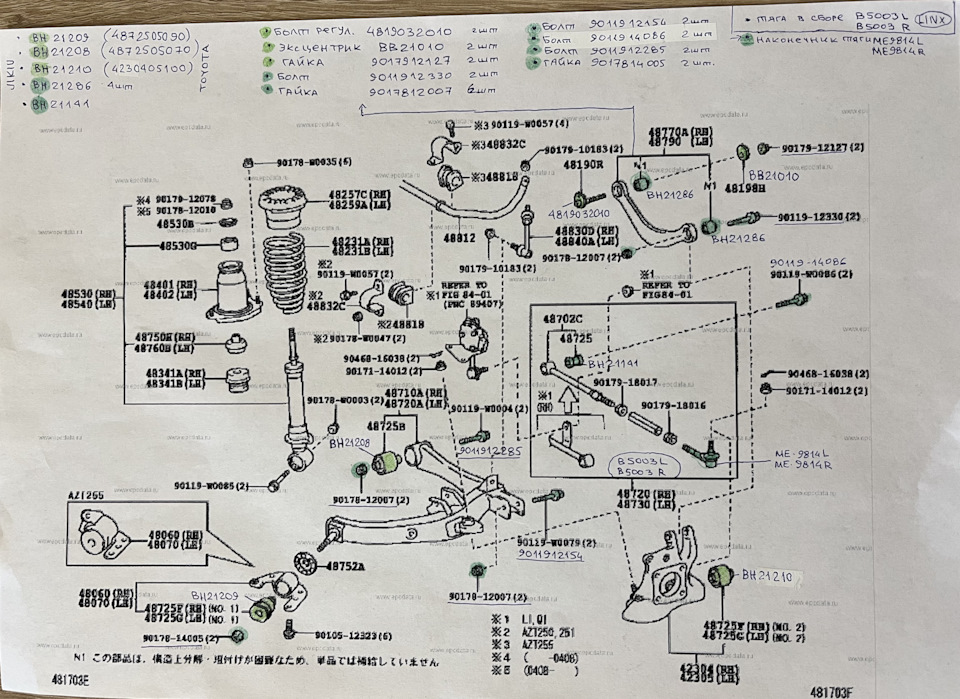 • BH 21209 (4872505090)
• BH 21208 (4872505070)
• BH 21210 (4230405100)
• BH 21286 4шт
• BH 21141
JIKIU
TOYOTA
• БОЛТ РЕГУЛ. 4819032010 2шт
• ЭКСЦЕНТРИК BB21010 2шт
• ГАЙКА 9017912127 2шт
• БОЛТ 9011912330 2шт
• ГАЙКА 9017812007 6шт
• БОЛТ 9011912154 2шт
• БОЛТ 9011914086 2шт
• БОЛТ 9011912285 2шт
• ГАЙКА 9017814005 2шт.
• ТЯГА В СБОРЕ B5003L LINX
B5003R
• НАКОНЕЧНИК ТЯГИ ME9814L
ME9814R
www.epcdata.ru
※3 90119-W0057(4)
※3 48832C
※3 48818
90179-10183(2)
48190R
4819032010
48770A (RH)
48790 (LH)
N1
BH21286
N1
BH21286
90179-12127(2)
BB21010
48198H
90119-12330(2)
90178-W0035(6)
※4 90179-12078
※5 90178-12010
48530B
48530G
48257C(RH)
48259A(LH)
48231A(RH)
48231B(LH)
48401 (RH)
48402 (LH)
48530 (RH)
48540 (LH)
48750H(RH)
48760B(LH)
48341A(RH)
48341B(LH)
48812
90179-10183(2)
48830D(RH)
48840A(LH)
90178-12007(2)
※2
90119-W0057(2)
※2
48832C
※2 48818
※2 90178-W0047(2)
REFER TO
※1 FIG 84-01
(PNC 89407)
※1
REFER TO
FIG84-01
90119-14086
90119-W0086(2)
48702C
48725
BH21141
90179-18017
※1
(RH)
90179-18016
90468-16038(2)
90171-14012(2)
90468-16038(2)
90171-14012(2)
90178-W0003(2)
48710A(RH)
48720A(LH)
48725B
BH21208
90119-W0004(2)
9011912285
B5003L
B5003R
ME-9814L
ME-9814R
90119-W0085(2)
90178-12007(2)
48720(RH)
48730(LH)
90119-W0079(2)
9011912154
AZT255
48060(RH)
48070(LH)
48752A
BH21210
48060(RH)
48070(LH)
BH21209
48725F(RH)(NO. 1)
48725G(LH)(NO. 1)
90178-12007(2)
90178-14005(2)
90105-12323(6)
48725F (RH)(NO. 2)
48725G (LH)(NO. 2)
42304(RH)
42305(LH)
※1 L1, Q1
※2 AZT250, 251
※3 AZT255
※4 ( -0408)
※5 (0408- )
N1 この部品は、構造上分解・組付けが困難なため、単品では補給していません
481703E
481703F